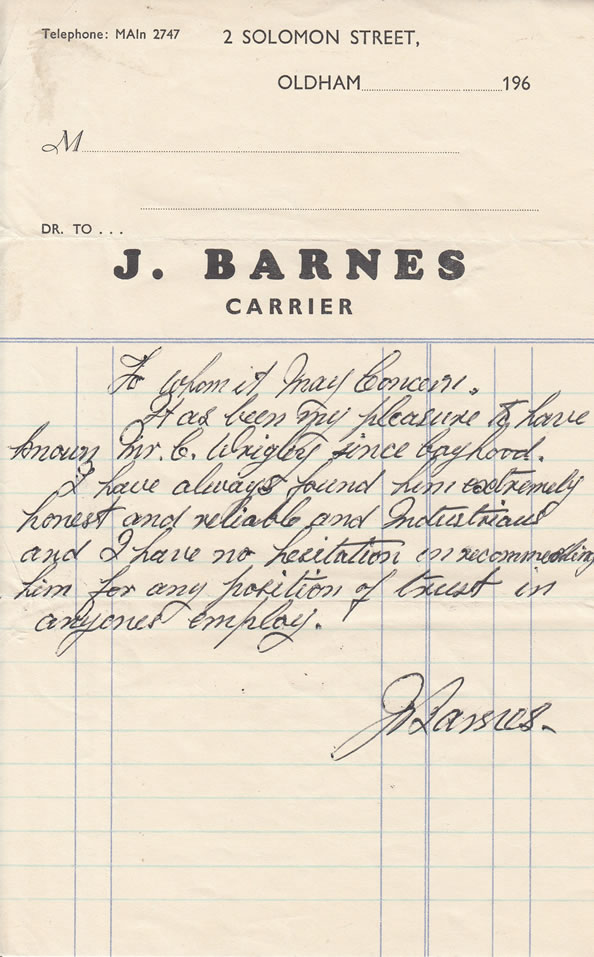 Telephone: MAIn 2747
2 SOLOMON STREET,
OLDHAM 196
M
DR. TO . . .
J. BARNES
CARRIER
To whom it May Concern.
It as been my pleasure to have
known Mr. C. Wrigley since boyhood.
I have always found him extremely
honest and reliable and Industrious
and I have no hesitation in recommending
him for any position of trust in
anyones employ.
J Barnes.